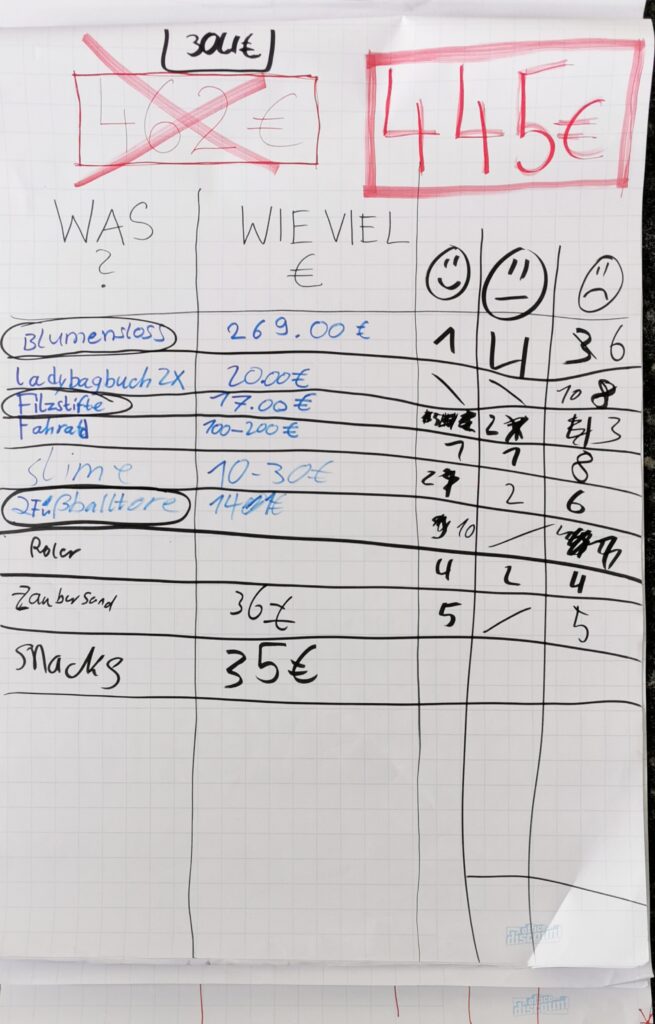 304€
462€
445€
WAS
?
WIE VIEL
€
Blumensloss 269.00 € 1 4 3 6
ladybagbuch 2X 20.00€ \ \ 10 8
Filzstifte 17.00€ 2 3
Fahrad 100-200€ 1 1 8
slime 10-30€ 2 2 6
2Fußballtore 14 € 10 /
Roler 4 2 4
Zaubersand 36€ 5 / 5
snacks 35€
office
discount
office
discount